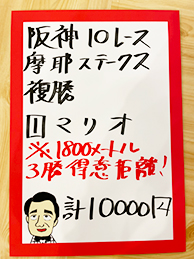 阪神10レース
摩耶ステークス
複勝
1マリオ
※1800メートル
3勝得意距離!
計10000円